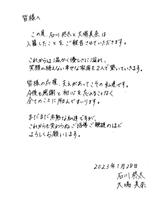 皆様へ
この度、石川恭太と大嶋美奈は
入籍したことをご報告させていただきます。
これからは温かく優しさに溢れ、
笑顔の絶えない幸せな家庭を2人で築いていきます。
皆様の応援、支えがあってこその私達です。
今後も感謝と初心を忘れることなく
全てのことに励んでまいります。
まだまだ未熟な私達ですが、
これからも変わらぬご指導ご鞭撻のほど
よろしくお願いします。
2023年1月28日
石川 恭太
大嶋 美奈